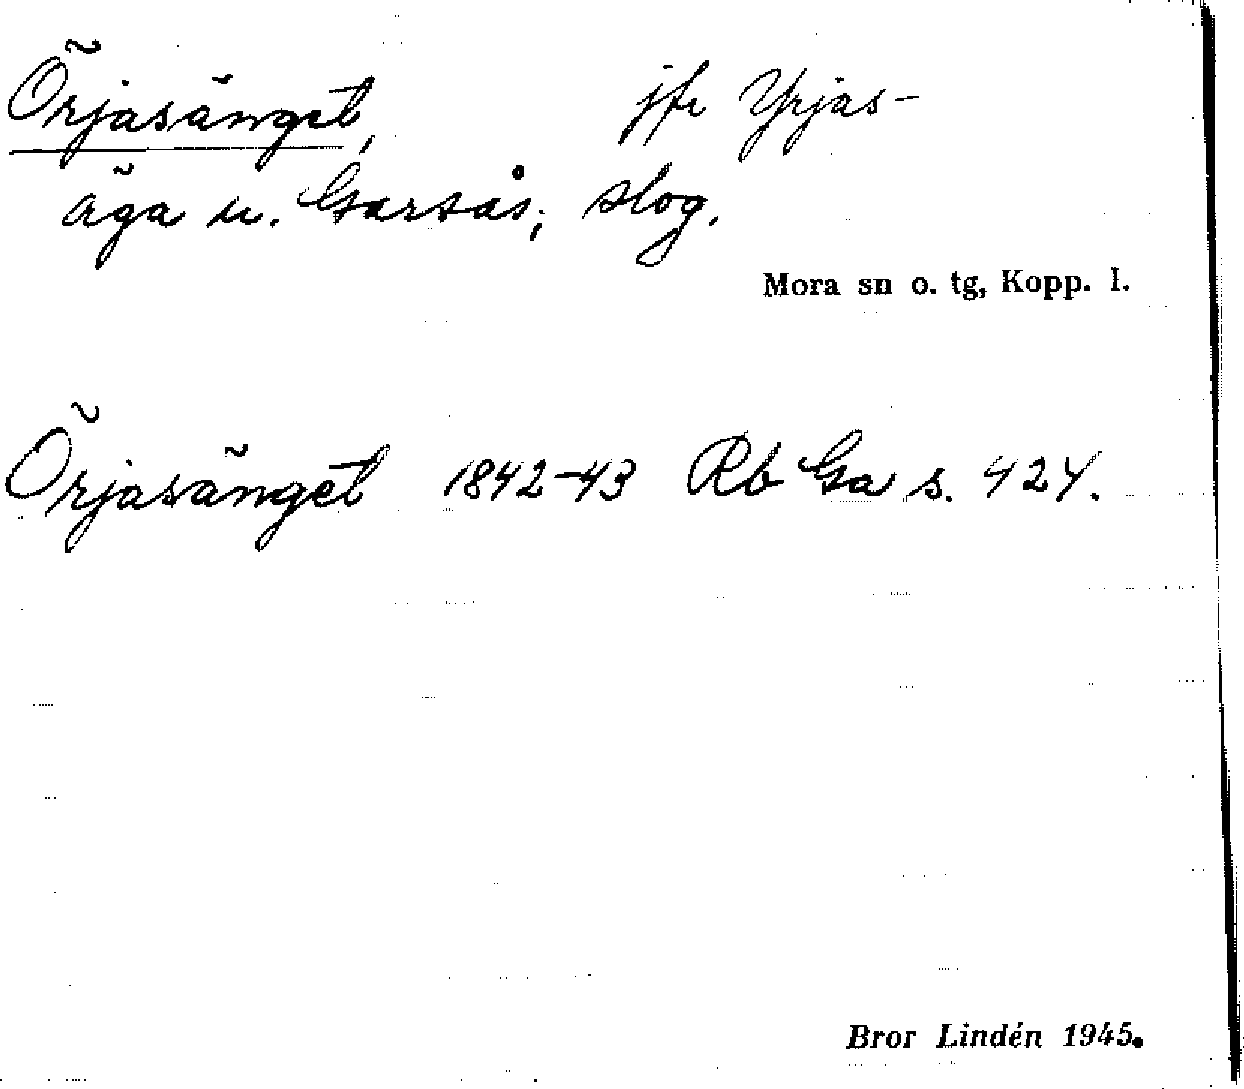 Örjasänget, jfr Yrjas-
äga u. Garsås; slog.
Mora sn o. tg, Kopp. l.
Örjasänget 1842-43 Rb Ga s. 424.
Bror Lindén 1945.